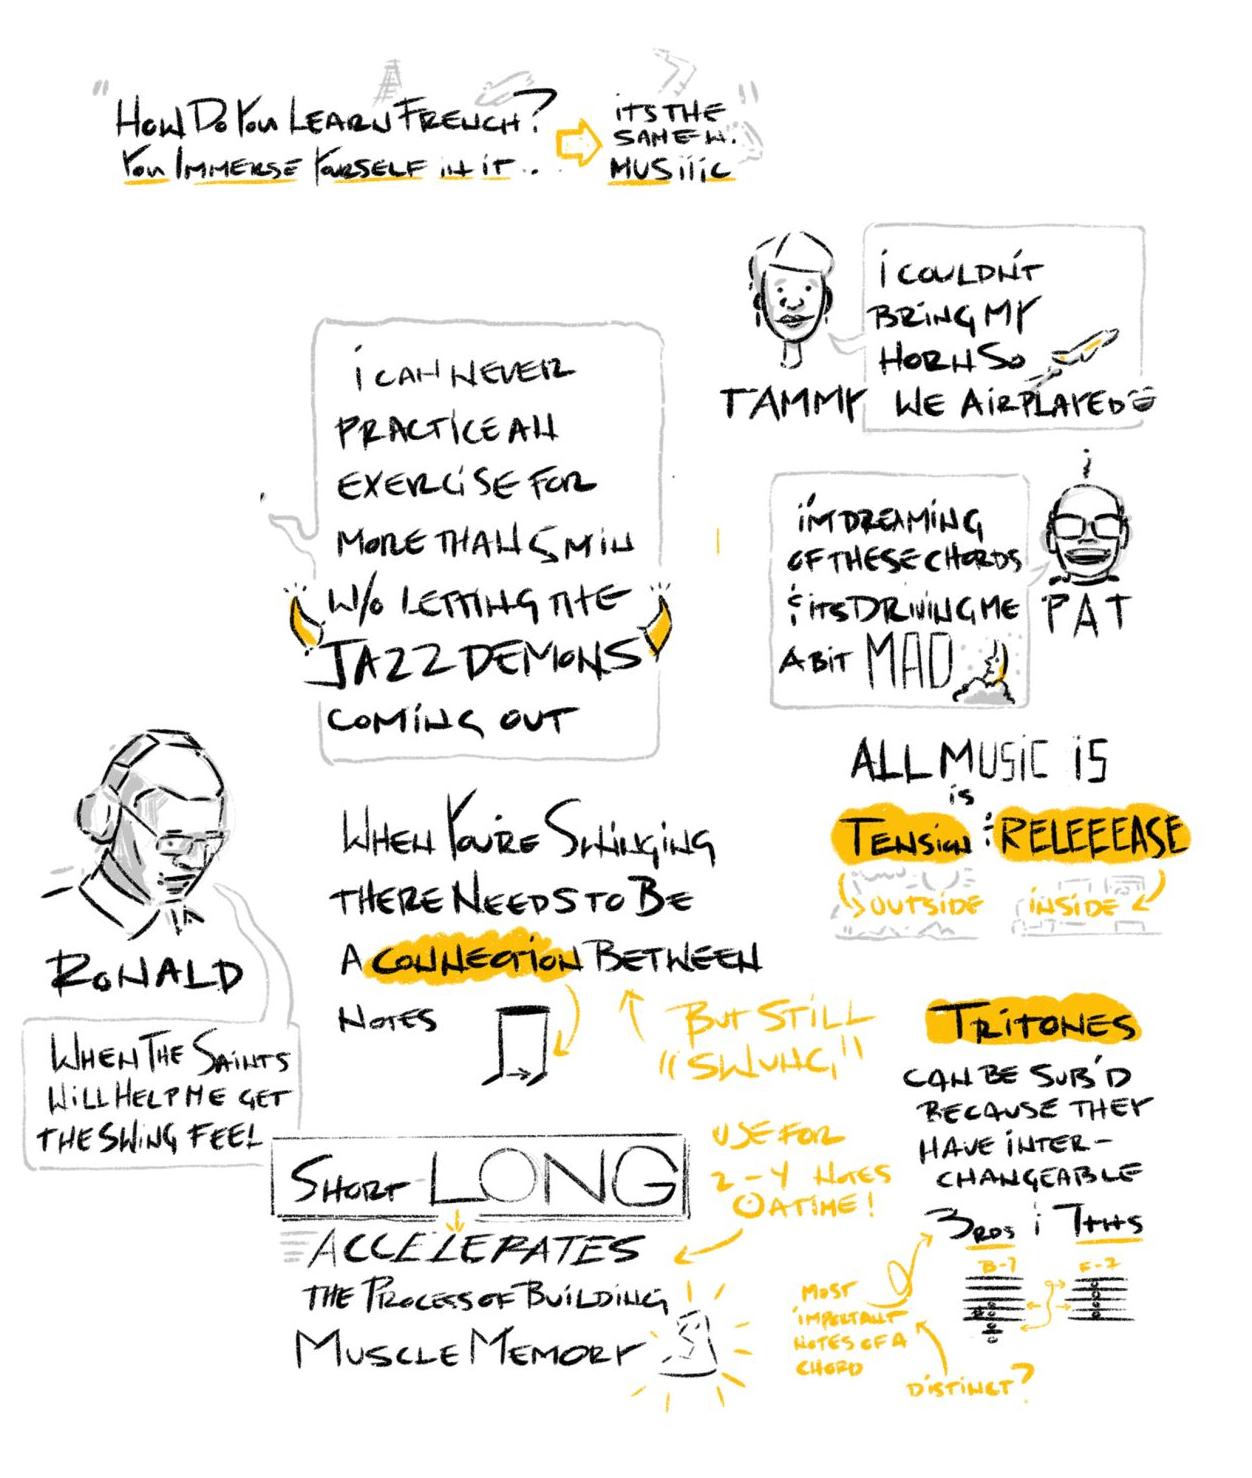 "HOW DO YOU LEARN FRENCH?
YOU IMMERSE YOURSELF IN IT..
ITS THE
SAME W.
MUSIIIC"
I COULDN'T
BRING MY
HORN SO
WE AIRPLAYED
TAMMY
I CAN NEVER
PRACTICE AN
EXERCISE FOR
MORE THAN 5 MIN
W/O LETTING THE
JAZZ DEMONS
COMING OUT
I'M DREAMING
OF THESE CHORDS
& ITS DRIVING ME
A BIT MAD
PAT
RONALD
WHEN THE SAINTS
WILL HELP ME GET
THE SWING FEEL
WHEN YOU'RE SWINGING
THERE NEEDS TO BE
A CONNECTION BETWEEN
NOTES
BUT STILL
"SWUNG"
ALL MUSIC IS
IS
TENSION & RELEEEASE
OUTSIDE
INSIDE
SHORT-LONG
ACCELERATES
THE PROCESS OF BUILDING
MUSCLE MEMORY
USE FOR
2-4 NOTES
@ A TIME!
TRITONES
CAN BE SUB'D
BECAUSE THEY
HAVE INTER-
CHANGEABLE
3RDS & 7THS
B-7
F-7
MOST
IMPORTANT
NOTES OF A
CHORD
DISTINCT?